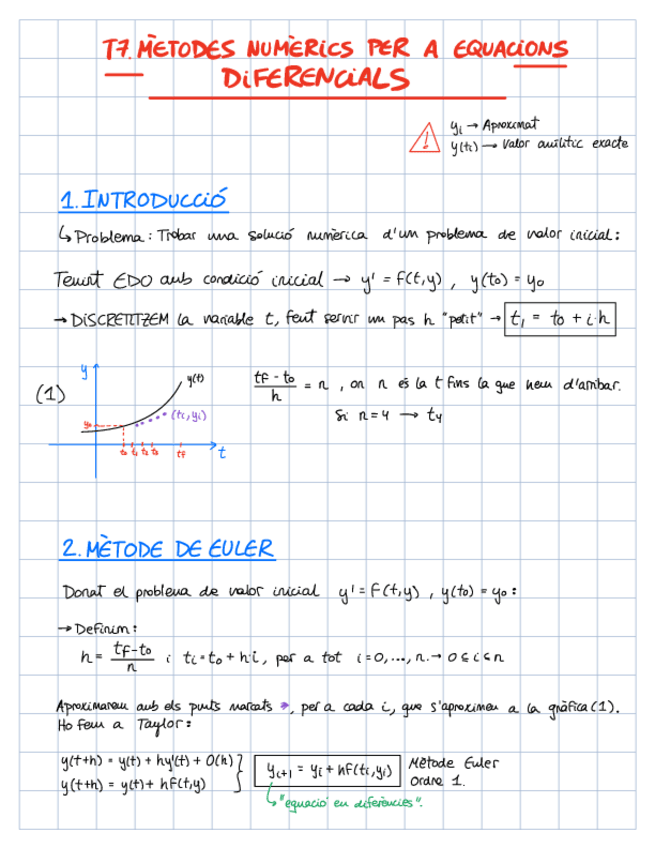 T7. MÈTODES NUMÈRICS PER A EQUACIONS
DIFERENCIALS
yi → Aproximat
y(ti) → Valor analític exacte
1. INTRODUCCIÓ
↳ Problema: Trobar una solució numèrica d'un problema de valor inicial:
Tenint EDO amb condició inicial → y' = f(t,y), y(t0) = y0
→ DISCRETITZEM la variable t, fent servir un pas h "petit" → t1 = t0 + i·h
(1)
y
y(t)
(ti, yi)
y0
t0 t1 t2 t3 tf
t
tf - t0 / h = n, on n és la t fins la que hem d'arribar.
Si n=4 → t4
2. MÈTODE DE EULER
Donat el problema de valor inicial y' = f(t,y), y(t0) = y0:
→ Definim:
h = tf-t0 / n i ti = t0 + h·i, per a tot i=0,...,n. → 0≤i≤n
Aproximarem amb els punts marcats *, per a cada i, que s'aproximen a la gràfica (1).
Ho fem a Taylor:
y(t+h) = y(t) + hy'(t) + O(h)
y(t+h) = y(t) + hf(t,y)
yi+1 = yi + hf(ti,yi)
Mètode Euler
Ordre 1.
↳ "equació en diferències".